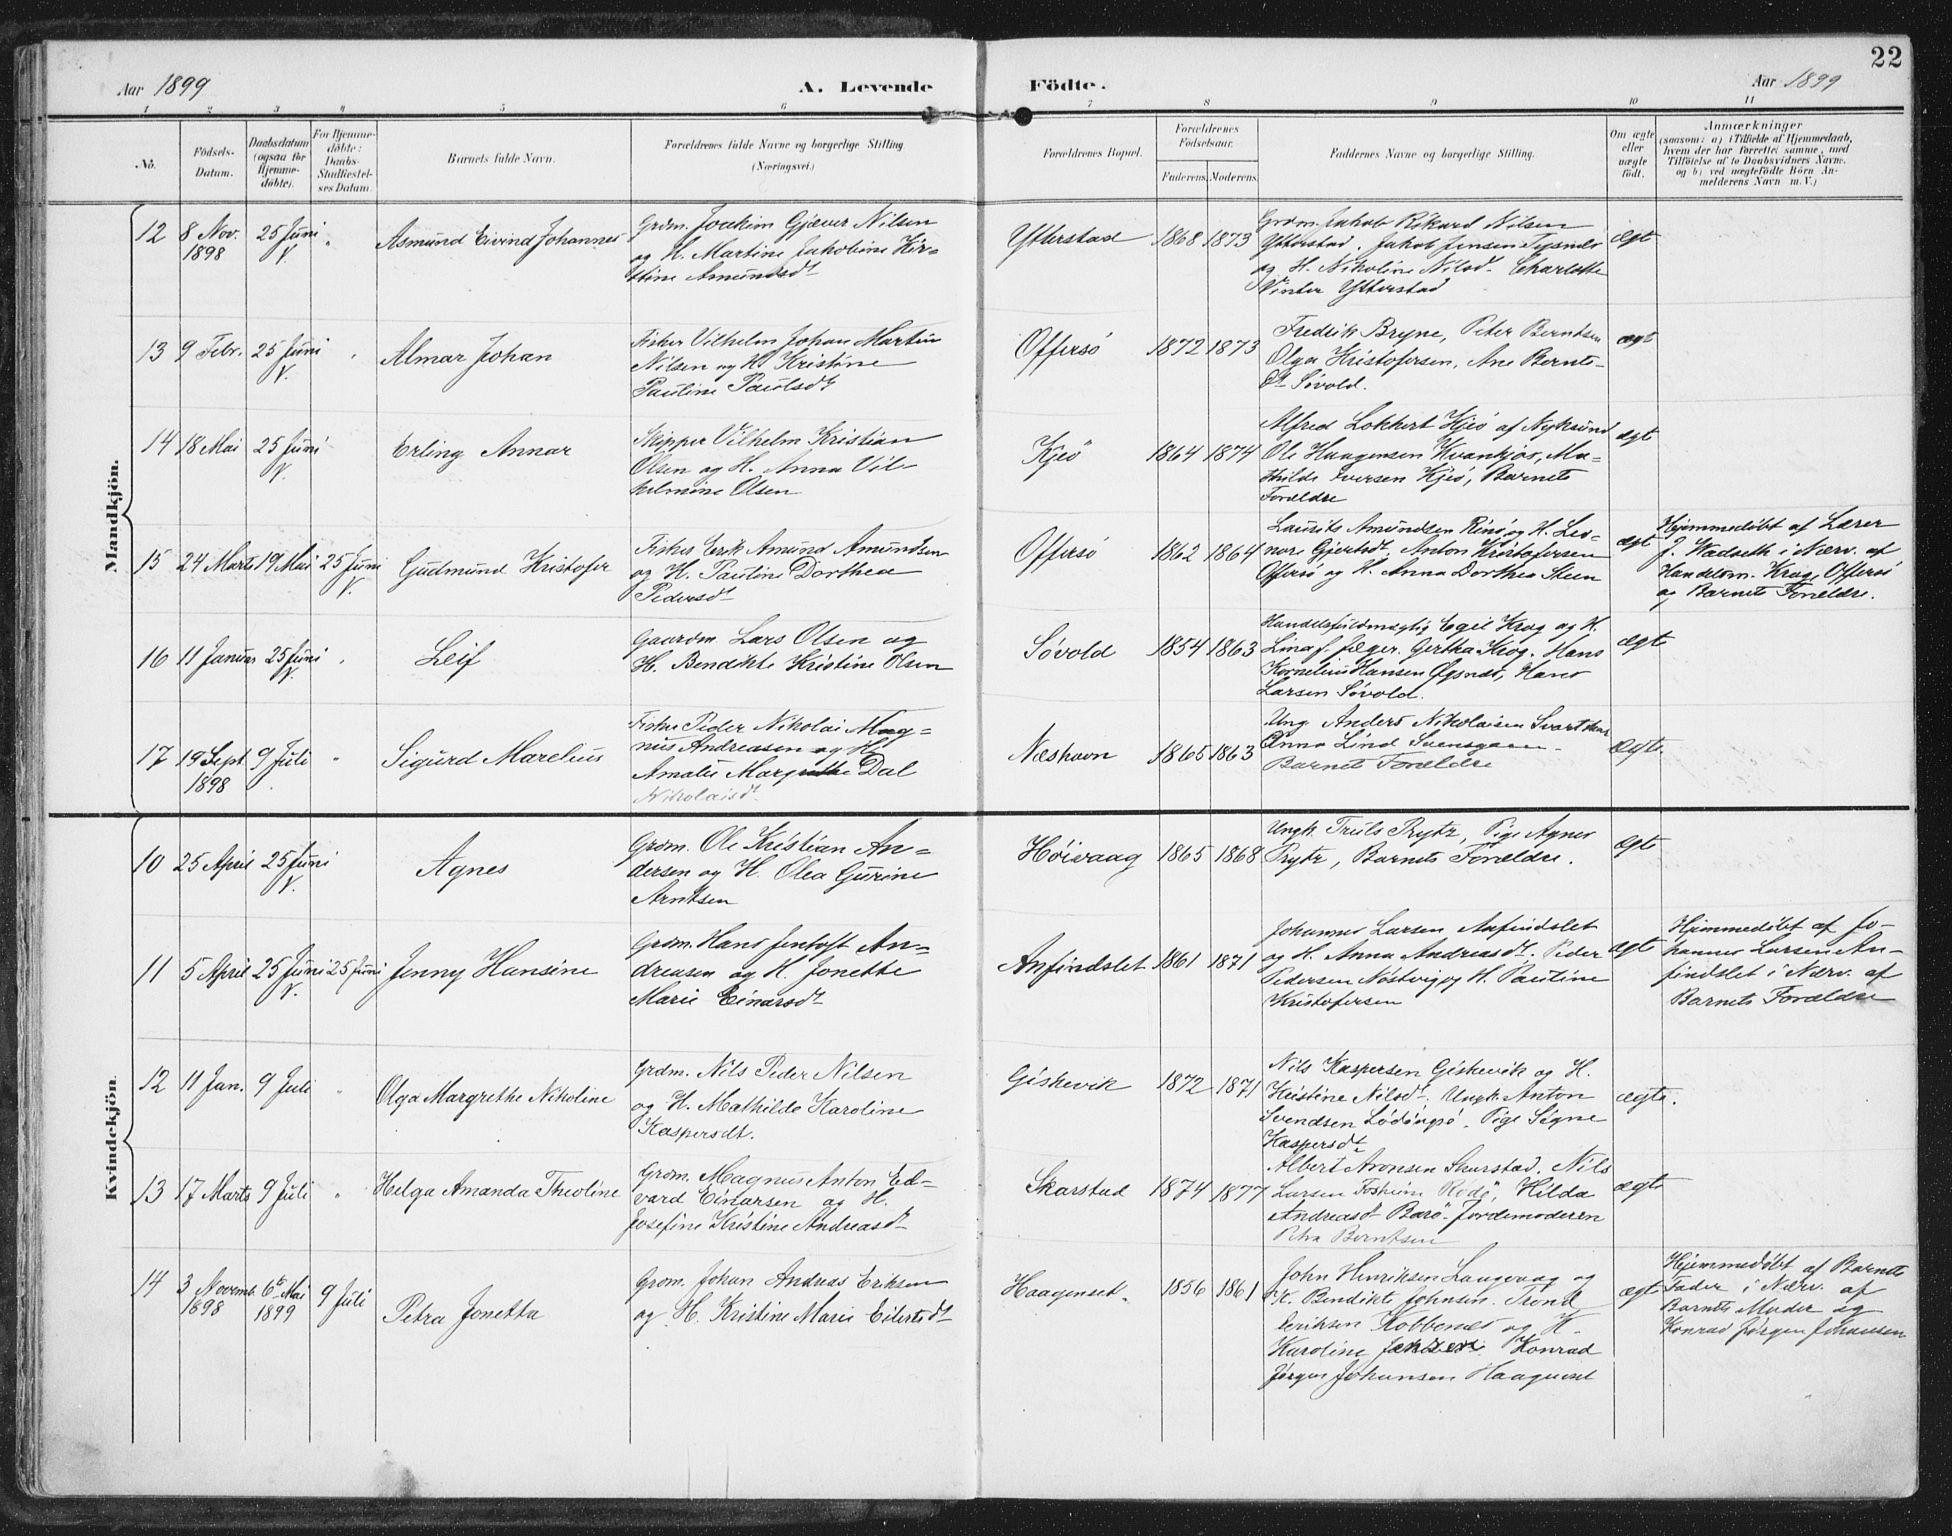 22
Aar 1899
A. Levende
Födte.
Aar 1899
1 2 3 4 5 6 7 8 9 10 11
No.
Födsels-
Datum.
Daabsdatum
(ogsaa for
Hjemme-
döbte).
For Hjemme-
döbte:
Daabs-
Stadfæstel-
ses Datum.
Barnets fulde Navn.
Forældrenes fulde Navne og borgerlige Stilling
(Næringsvei.)
Forældrenes Bopæl.
Forældrenes
Födselsaar.
Faderens. Moderens.
Faddernes Navne og borgerlige Stilling.
Om ægte
eller
uægte
födt.
Anmærkninger
(saasom: a) i Tilfælde af Hjemmedaab,
hvem der har forrettet samme, med
Tilföielse af to Daabsvidners Navne.
og b) ved uægtefödte Börn An-
melderens Navn m. V.)
Mandkjön.
12 8 Nov. 1898 25 Juni V. " Asmund Eivind Johannes
Grdm. Joakim Gjæver Nilsen
og H. Martine Jakobine Kir-
stine Amundsdt
Ytterstad 1868 1873
Grdm. Jakob Rikard Nilsen
Ytterstad. Jakob Jensen Tysnes
og H. Nikoline Nilsdt. Charlotte
Vinter Ytterstad
ægt
13 9 Febr. 25 Juni V. " Almar Johan
Fisker Vilhelm Johan Martin
Nilsen og H. Kristine
Pauline Paulsdt
Offersö 1872 1873
Fredrik Bryne, Peter Berntsen
Olga Kristofersen, Ane Bernts-
dt Sövold.
ægt
14 18 Mai 25 Juni V. Erling Annar
Skipper Vilhelm Kristian
Olsen og H. Anna Vil-
helmine Olsen
Kjeö 1864 1874
Alfred Lokkert Kjeö af Nyksund
Ole Haagensen Kvankjös, Ma-
thilde Iversen Kjeö, Barnets
Forældre
ægt
15 24 Marts 19 Mai 25 Juni V. Gudmund Kristofer
Fisker Erik Amund Amundsen
og H. Pauline Dorthea
Pedersdt
Offersö 1862 1864
Laurits Amundsen Rinö og H. Leo-
nore Gjertsdt, Anton Kristofersen
Offersö og H. Anna Dorthea Steen
ægt
Hjemmedöbt af Lærer
J. Wadseth i Nærv. af
Handelsm. Krog, Offersö
og Barnets Forældre.
16 11 Januar 25 Juni V. " Leif
Gaardm. Lars Olsen og
H. Bendikte Kristine Olsen
Sövold 1854 1863
Handelsfuldmægtig Egil Krog og H.
Lina f. Jæger. Gertha Krog. Hans
Kornelius Hansen Øgsnes, Hans
Larsen Sövold.
ægt
17 19 Sept 1898 9 Juli " Sigurd Marelius
Fisker Peder Nikolai Mag-
nus Andreasen og H.
Amalie Margrethe Dal
Nikolaisdt
Næshavn 1865 1863
Ung. Anders Nikolaisen
Anna Lind
Barnets Forældre
ægte
Kvindekjön.
10 25 April 25 Juni V. Agnes
Grdm. Ole Kristian An-
dersen og H. Olea Gurine
Arntsen
Höivaag 1865 1868
Ungk. Truls Prytz, Pige Agnes
Prytz, Barnets Forældre.
ægte
11 5 April 25 Juni V. 25 Juni Jenny Hansine
Grdm. Hans Jentoft An-
dreasen og H. Jonette
Marie Einarsdt
Anfindslet 1861 1871
Johannes Larsen Anfindslet
og H. Anna Andreasdt. Peder
Pedersen Nöstvig og H. Pauline
Kristofersen
ægt
Hjemmedöbt af Jo-
hannes Larsen An-
findslet i Nærv. af
Barnets Forældre
12 11 Jan. 9 Juli " Olga Margrethe Nikoline
Grdm. Nils Peder Nilsen
og H. Mathilde Karoline
Kaspersdt.
Giskevik 1872 1871
Nils Kaspersen Giskevik og H.
Kristine Nilsdt. Ungk. Anton
Svendsen Lödöngsö. Pige Signe
Kaspersdt
ægte.
13 17 Marts 9 Juli " Helga Amanda Theoline
Grdm. Magnus Anton Ed-
vard Einarsen og H.
Josefine Kristine Andreasdt
Skarstad 1874 1877
Albert Aronsen Skarstad. Nils
Larsen Rödö, Hilda
Andreasdt Barö. Jordemoderen
Petra Berntsen
ægte
14 3 Novemb. 1898 6te Mai 1899 9 Juli Petra Jonetta
Grdm. Johan Andreas Eriksen
og H. Kristine Marie Eilertsdt
Haagenset. 1856 1861
John Henriksen Langvaag og
H. Bendikte Johnsen. Trond
Eriksen Kobbenes og H.
Karoline Jentzen. Konrad
Jörgen Johansen Haagenset
ægt
Hjemmedöbt af Barnets
Fader i Nærv. af
Barnets Moder og
Konrad Jörgen Johansen